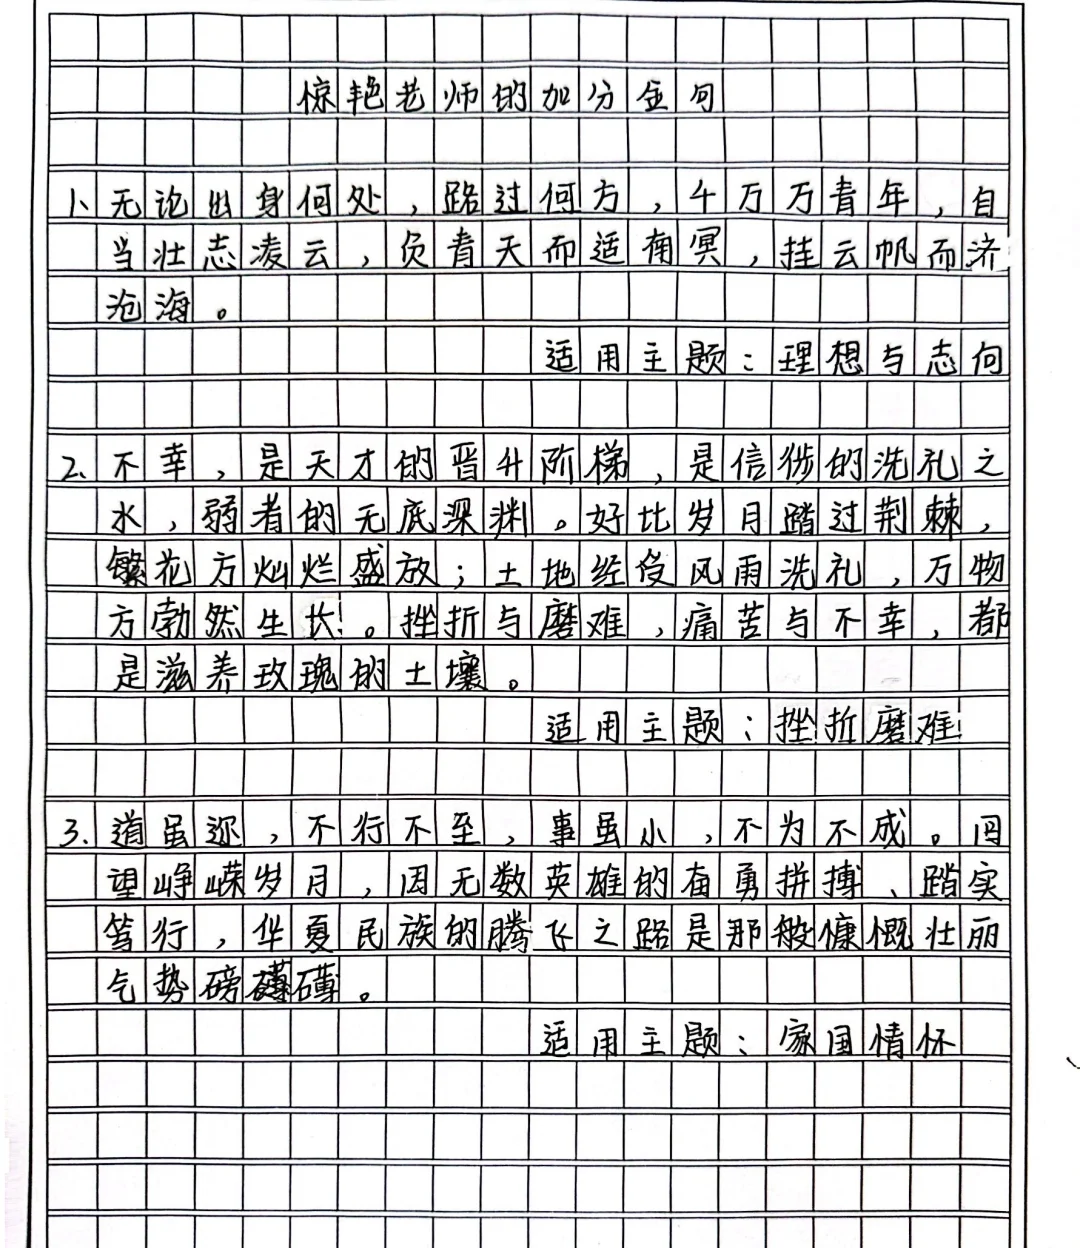 惊艳老师的加分金句
1、无论出身何处，路过何方，千万万青年，自
当壮志凌云，负青天而适南冥，挂云帆而济
沧海。
适用主题：理想与志向
2、不幸，是天才的晋升阶梯，是信徒的洗礼之
水，弱者的无底深渊。好比岁月踏过荆棘，
繁花方灿烂盛放；土地经受风雨洗礼，万物
方勃然生长。挫折与磨难，痛苦与不幸，都
是滋养玫瑰的土壤。
适用主题：挫折磨难
3.道虽迩，不行不至，事虽小，不为不成。回
望峥嵘岁月，因无数英雄的奋勇拼搏、踏实
笃行，华夏民族的腾飞之路是那般慷慨壮丽
气势磅礴礴。
适用主题：家国情怀